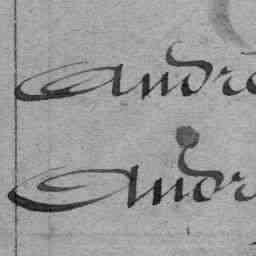 Andre
Andr